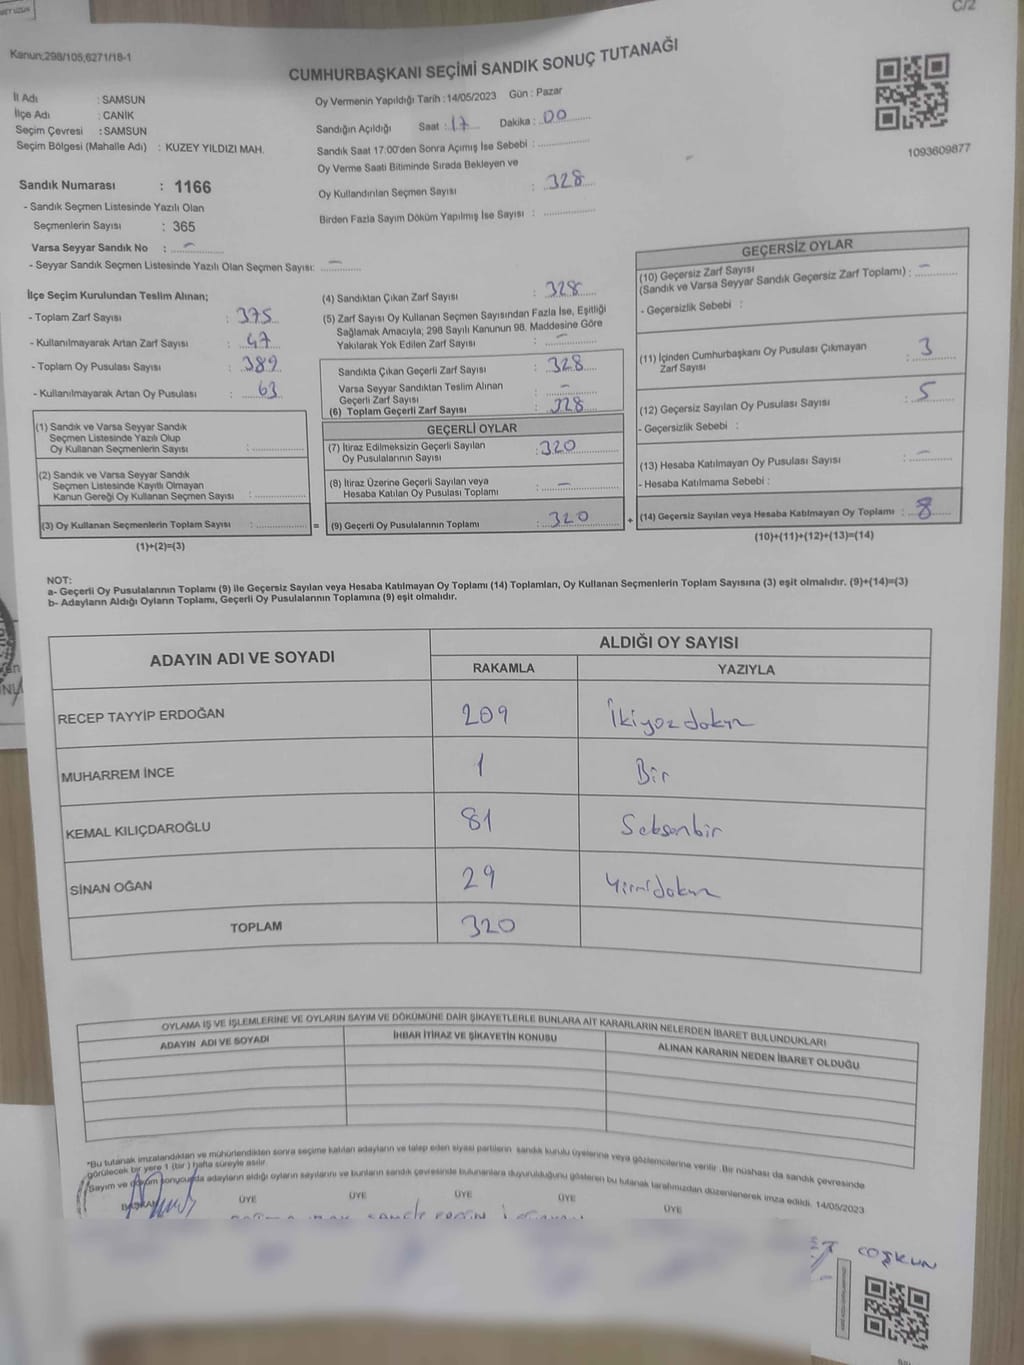 C/2
Kanun;298/105;6271/18-1
CUMHURBAŞKANI SEÇİMİ SANDIK SONUÇ TUTANAĞI
İl Adı : SAMSUN
İlçe Adı : CANİK
Seçim Çevresi : SAMSUN
Seçim Bölgesi (Mahalle Adı) : KUZEY YILDIZI MAH.
Sandık Numarası : 1166
- Sandık Seçmen Listesinde Yazılı Olan
Seçmenlerin Sayısı : 365
Varsa Seyyar Sandık No : –
- Seyyar Sandık Seçmen Listesinde Yazılı Olan Seçmen Sayısı: –
Oy Vermenin Yapıldığı Tarih : 14/05/2023 Gün : Pazar
Sandığın Açıldığı Saat : 17 Dakika : 00
Sandık Saat 17:00'den Sonra Açımış İse Sebebi :
Oy Verme Saati Bitiminde Sırada Bekleyen ve
Oy Kullandırılan Seçmen Sayısı : 328
Birden Fazla Sayım Döküm Yapılmış İse Sayısı :
1093609877
İlçe Seçim Kurulundan Teslim Alınan;
- Toplam Zarf Sayısı : 375
- Kullanılmayarak Artan Zarf Sayısı : 47
- Toplam Oy Pusulası Sayısı : 389
- Kullanılmayarak Artan Oy Pusulası : 63
(1) Sandık ve Varsa Seyyar Sandık
Seçmen Listesinde Yazılı Olup
Oy Kullanan Seçmenlerin Sayısı :
(2) Sandık ve Varsa Seyyar Sandık
Seçmen Listesinde Kayıtlı Olmayan
Kanun Gereği Oy Kullanan Seçmen Sayısı :
(3) Oy Kullanan Seçmenlerin Toplam Sayısı : =
(1)+(2)=(3)
(4) Sandıktan Çıkan Zarf Sayısı : 328
(5) Zarf Sayısı Oy Kullanan Seçmen Sayısından Fazla İse, Eşitliği
Sağlamak Amacıyla; 298 Sayılı Kanunun 98. Maddesine Göre
Yakılarak Yok Edilen Zarf Sayısı : –
Sandıkta Çıkan Geçerli Zarf Sayısı : 328
Varsa Seyyar Sandıktan Teslim Alınan
Geçerli Zarf Sayısı : –
(6) Toplam Geçerli Zarf Sayısı : 328
GEÇERLİ OYLAR
(7) İtiraz Edilmeksizin Geçerli Sayılan
Oy Pusulalarının Sayısı : 320
(8) İtiraz Üzerine Geçerli Sayılan veya
Hesaba Katılan Oy Pusulası Toplamı : –
(9) Geçerli Oy Pusulalarının Toplamı : 320 +
GEÇERSİZ OYLAR
(10) Geçersiz Zarf Sayısı
(Sandık ve Varsa Seyyar Sandık Geçersiz Zarf Toplamı) : –
- Geçersizlik Sebebi :
(11) İçinden Cumhurbaşkanı Oy Pusulası Çıkmayan
Zarf Sayısı : 3
(12) Geçersiz Sayılan Oy Pusulası Sayısı : 5
- Geçersizlik Sebebi :
(13) Hesaba Katılmayan Oy Pusulası Sayısı : –
- Hesaba Katılmama Sebebi :
(14) Geçersiz Sayılan veya Hesaba Katılmayan Oy Toplamı : 8
(10)+(11)+(12)+(13)=(14)
NOT:
a- Geçerli Oy Pusulalarının Toplamı (9) ile Geçersiz Sayılan veya Hesaba Katılmayan Oy Toplamı (14) Toplamları, Oy Kullanan Seçmenlerin Toplam Sayısına (3) eşit olmalıdır. (9)+(14)=(3)
b- Adayların Aldığı Oyların Toplamı, Geçerli Oy Pusulalarının Toplamına (9) eşit olmalıdır.
ADAYIN ADI VE SOYADI ALDIĞI OY SAYISI
RAKAMLA YAZIYLA
RECEP TAYYİP ERDOĞAN 209 İkiyüzdokuz
MUHARREM İNCE 1 Bir
KEMAL KILIÇDAROĞLU 81 Seksenbir
SİNAN OĞAN 29 Yirmidokuz
TOPLAM 320
OYLAMA İŞ VE İŞLEMLERİNE VE OYLARIN SAYIM VE DÖKÜMÜNE DAİR ŞİKAYETLERLE BUNLARA AİT KARARLARIN NELERDEN İBARET BULUNDUKLARI
ADAYIN ADI VE SOYADI İHBAR İTİRAZ VE ŞİKAYETİN KONUSU ALINAN KARARIN NEDEN İBARET OLDUĞU
*Bu tutanak imzalandıktan ve mühürlendikten sonra seçime katılan adayların ve talep eden siyasi partilerin sandık kurulu üyelerine veya gözlemcilerine verilir. Bir nüshası da sandık çevresinde
görülecek bir yere 1 (bir) hafta süreyle asılır.
Sayım ve döküm sonucunda adayların aldığı oyların sayılarını ve bunların sandık çevresinde bulunanlara duyurulduğunu gösteren bu tutanak tarafımızdan düzenlenerek imza edildi. 14/05/2023
BAŞKAN ÜYE ÜYE ÜYE ÜYE ÜYE
COŞKUN